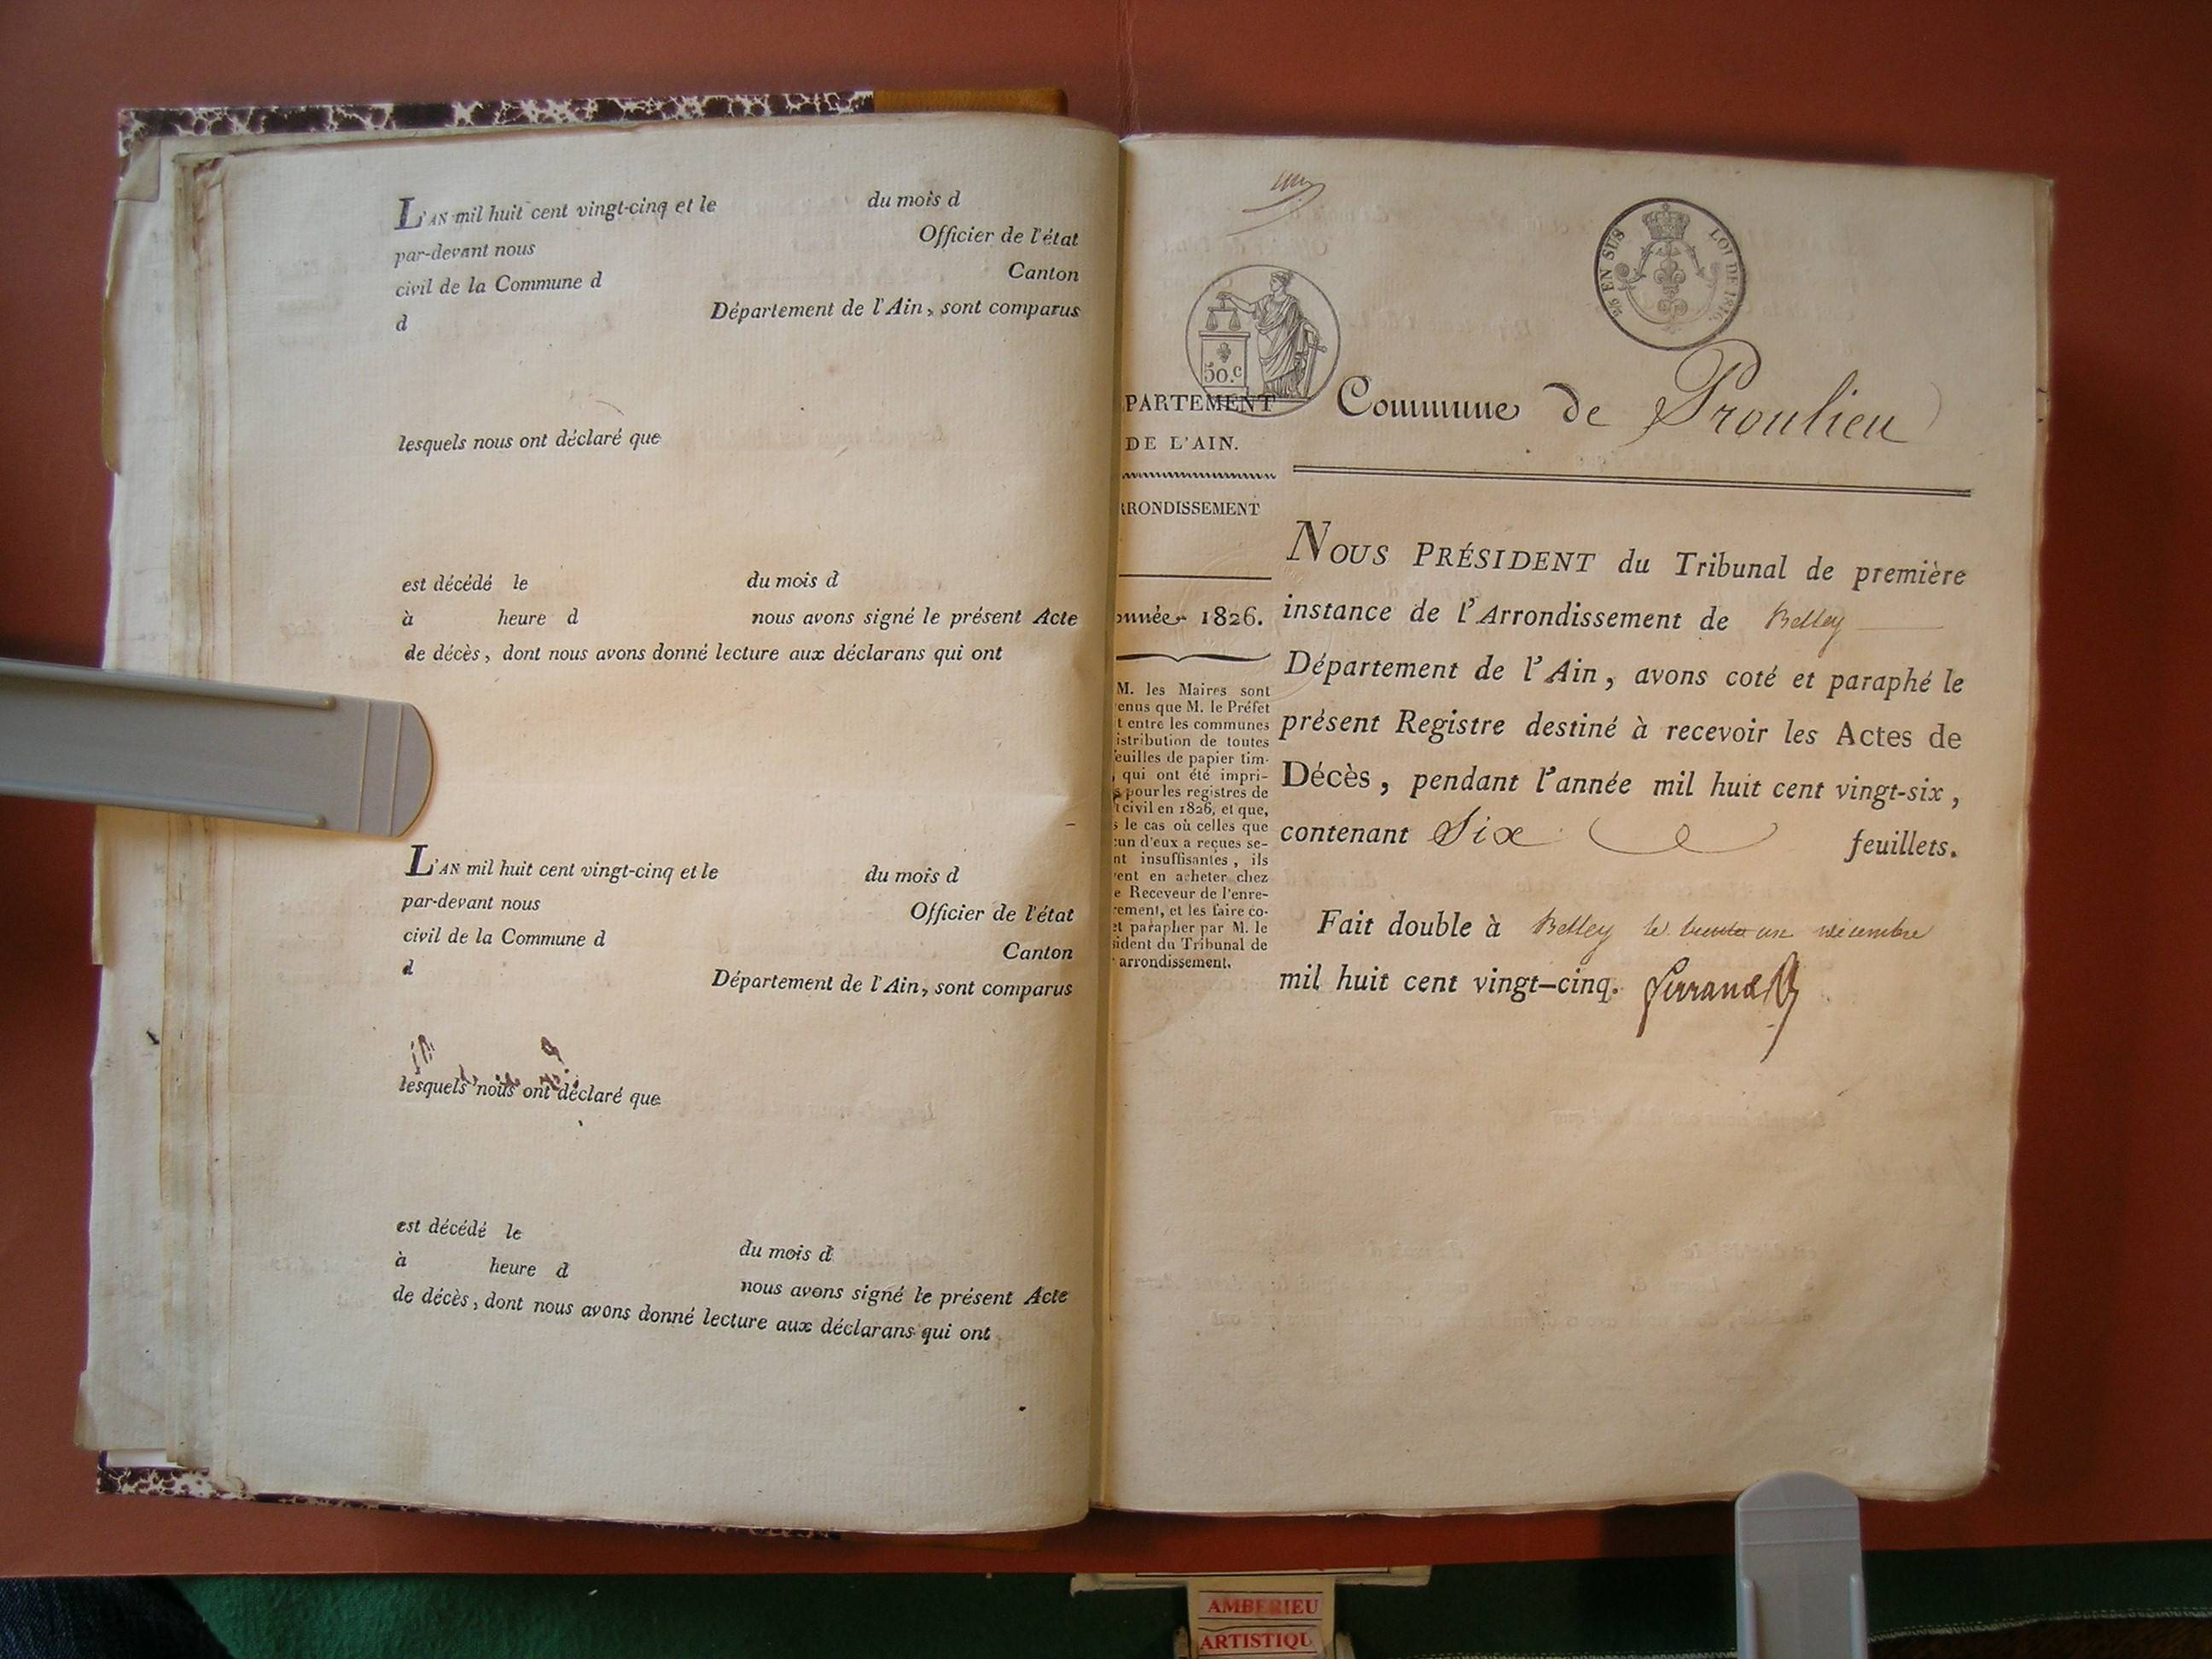 L'AN mil huit cent vingt-cinq et le du mois d
par-devant nous Officier de l'état
civil de la Commune d Canton
d Département de l'Ain, sont comparus
lesquels nous ont déclaré que
est décédé le du mois d
à heure d nous avons signé le présent Acte
de décès, dont nous avons donné lecture aux déclarans qui ont
L'AN mil huit cent vingt-cinq et le du mois d
par-devant nous Officier de l'état
civil de la Commune d Canton
d Département de l'Ain, sont comparus
lesquels nous ont déclaré que
est décédé le du mois d
à heure d nous avons signé le présent Acte
de décès, dont nous avons donné lecture aux déclarans qui ont
EN SUS LOI DE 1816.
50.c
PARTEMENT
DE L'AIN.
RRONDISSEMENT
nnée 1826.
M. les Maires sont
enus que M. le Préfet
t entre les communes
istribution de toutes
euilles de papier tim-
qui ont été impri-
s pour les registres de
t civil en 1826, et que,
s le cas où celles que
cun d'eux a reçues se-
nt insuffisantes, ils
ent en acheter chez
e Receveur de l'enre-
ement, et les faire co-
et parapher par M. le
sident du Tribunal de
arrondissement.
Commune de Proulieu
NOUS PRÉSIDENT du Tribunal de première
instance de l'Arrondissement de Belley
Département de l'Ain, avons coté et paraphé le
présent Registre destiné à recevoir les Actes de
Décès, pendant l'année mil huit cent vingt-six,
contenant Six feuillets.
Fait double à Belley le trente un décembre
mil huit cent vingt-cinq. Ferrand
AMBERIEU
ARTISTIQU